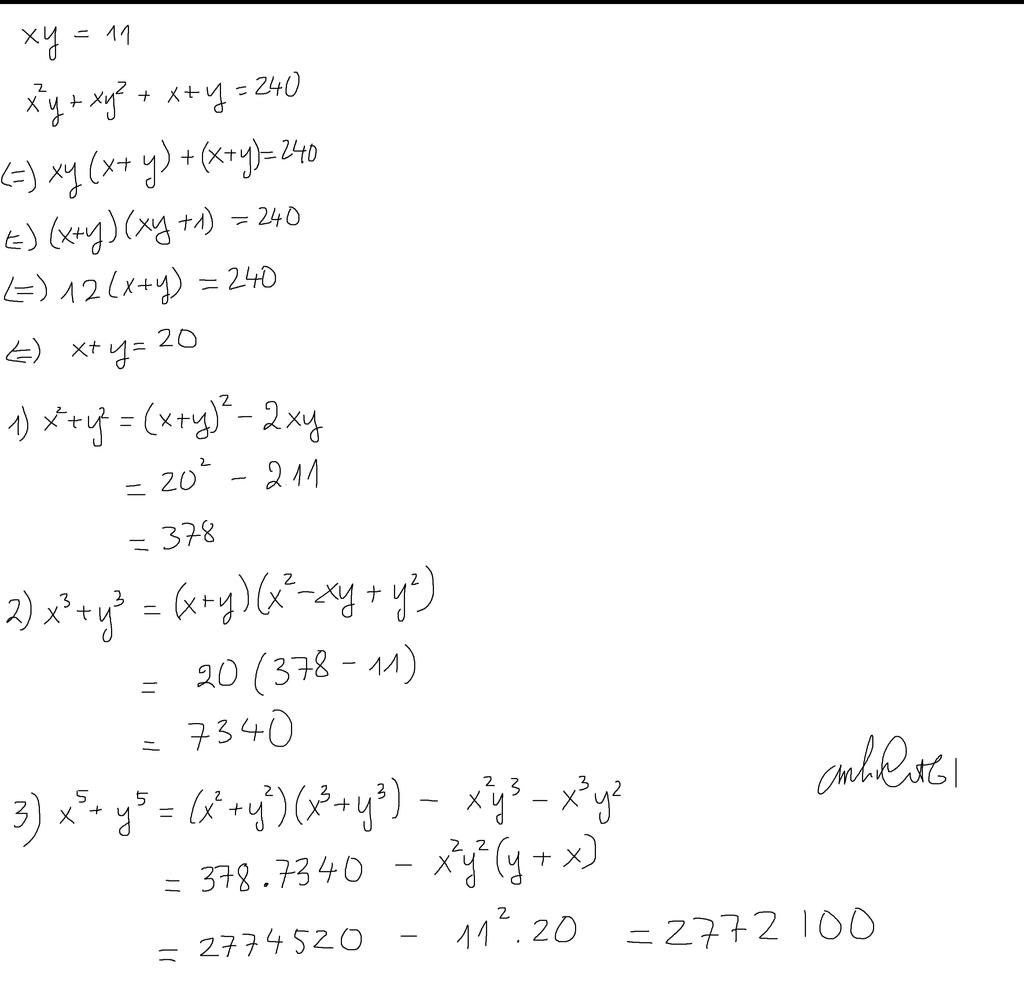 xy = 11
x²y + xy² + x+y = 240
(=) xy(x+y) + (x+y) = 240
(=) (x+y)(xy+1) = 240
(=) 12(x+y) = 240
(=) x+y = 20
1) x²+y² = (x+y)² - 2xy
= 20² - 2 11
= 378
2) x³+y³ = (x+y)(x²-xy+y²)
= 20(378-11)
= 7340
3) x⁵+y⁵ = (x²+y²)(x³+y³) - x²y³ - x³y²
= 378.7340 - x²y²(y+x)
= 2774520 - 11².20 = 2772100